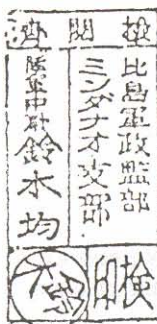 検閲濟
比島軍政監部
ミンダナオ支部
陸軍中尉 鈴木均
検印
鈴木